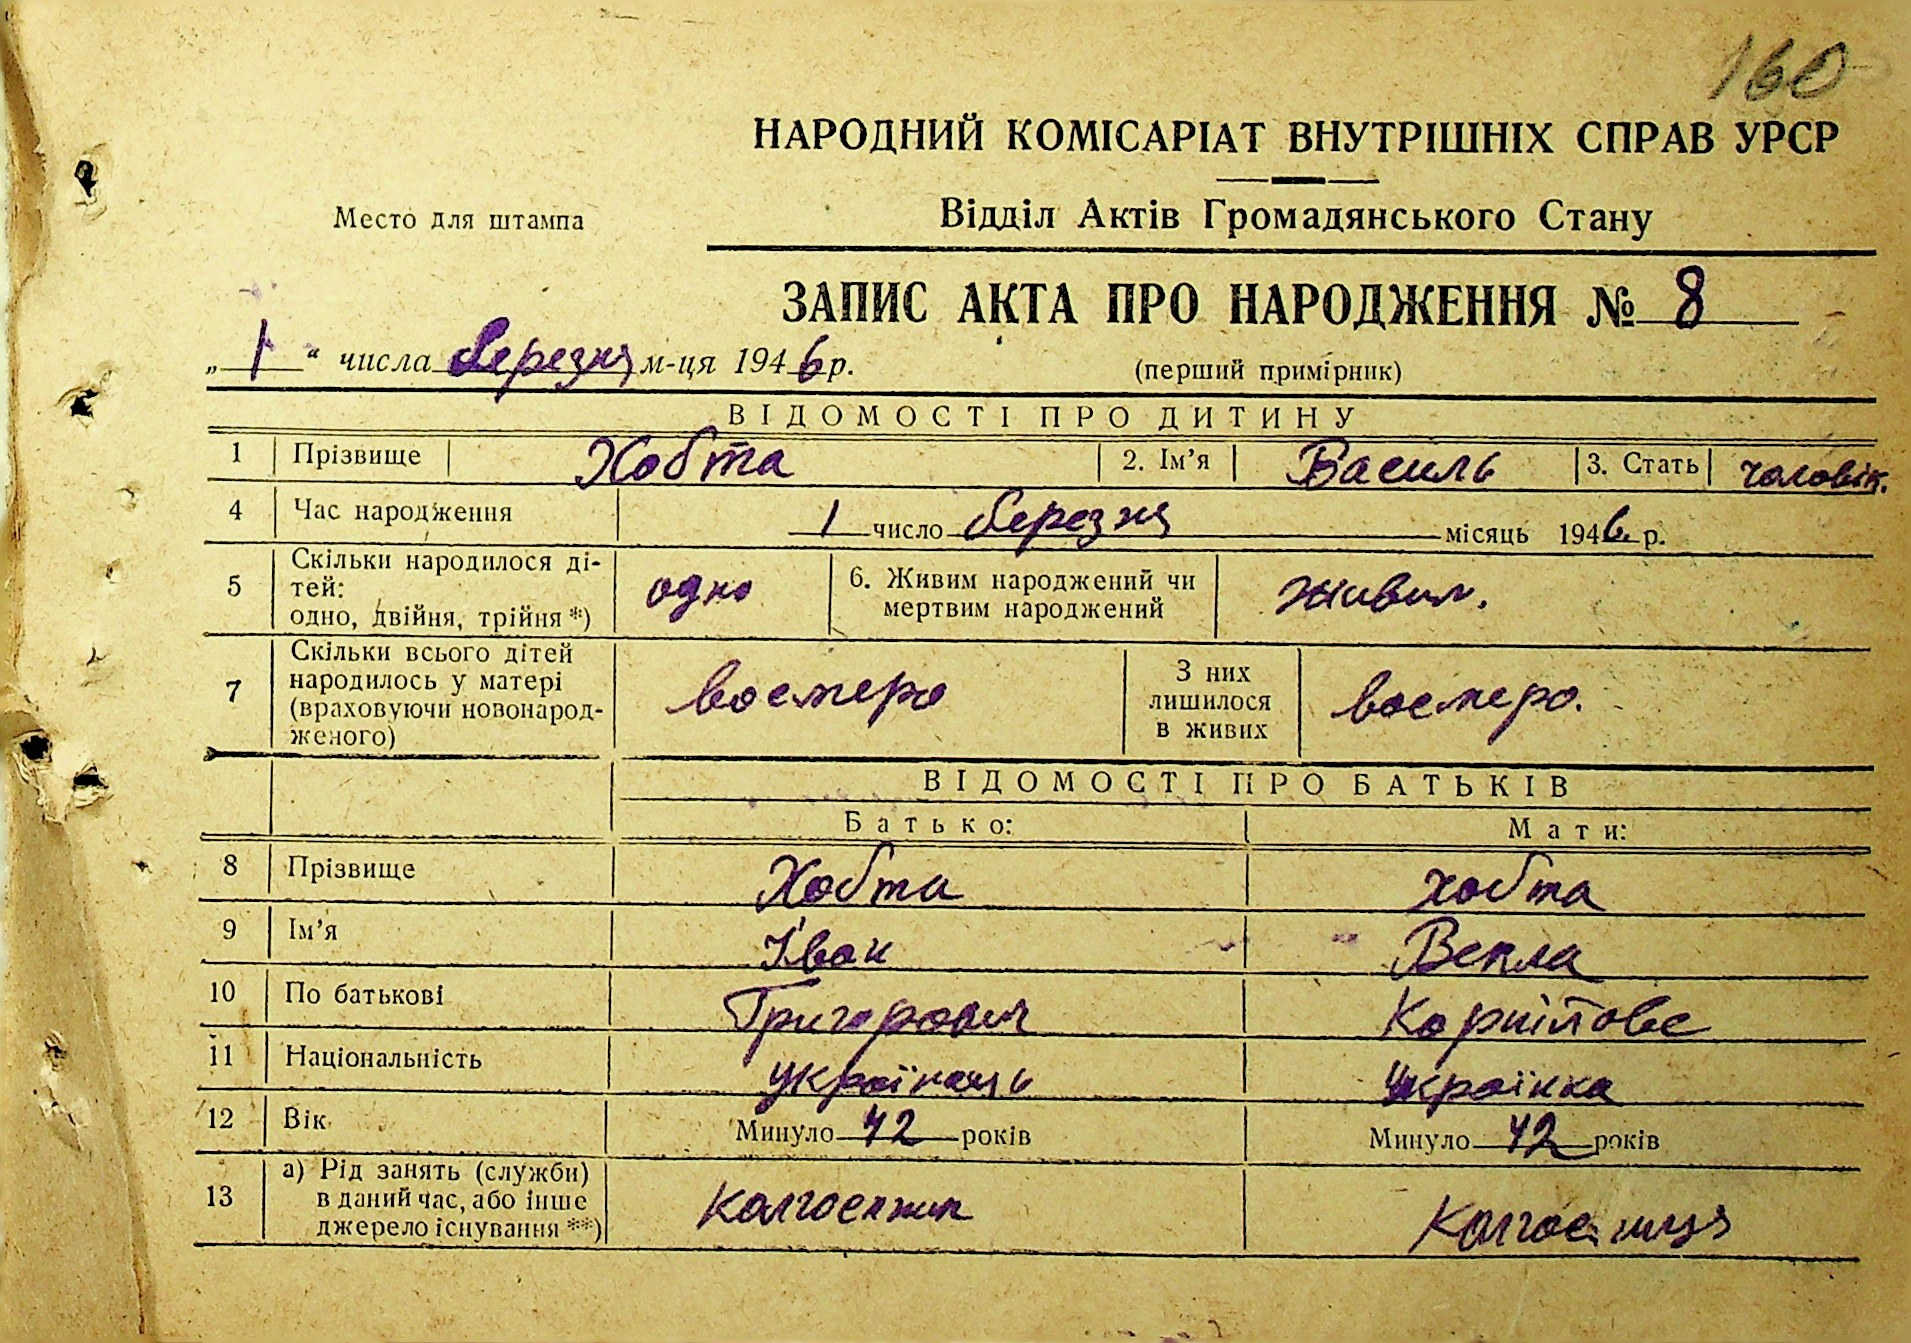 160
НАРОДНИЙ КОМІСАРІАТ ВНУТРІШНІХ СПРАВ УРСР
Место для штампа
Відділ Актів Громадянського Стану
ЗАПИС АКТА ПРО НАРОДЖЕННЯ № 8
„1“ числа березня м-ця 1946 р.
(перший примірник)
ВІДОМОСТІ ПРО ДИТИНУ
1 Прізвище Хобта 2. Ім’я Василь 3. Стать чоловік.
4 Час народження 1 число березня місяць 1946 р.
5 Скільки народилося ді-
тей:
одно, двійня, трійня *) одно
6. Живим народжений чи
мертвим народжений живим.
7 Скільки всього дітей
народилось у матері
(враховуючи новонарод-
женого) восмеро
З них
лишилося
в живих восмеро.
ВІДОМОСТІ ПРО БАТЬКІВ
Батько: Мати:
8 Прізвище Хобта хобта
9 Ім’я Іван
10 По батькові Григорович
11 Національність українець українка
12 Вік Минуло 42 років Минуло 42 років
13 а) Рід занять (служби)
в даний час, або інше
джерело існування **)